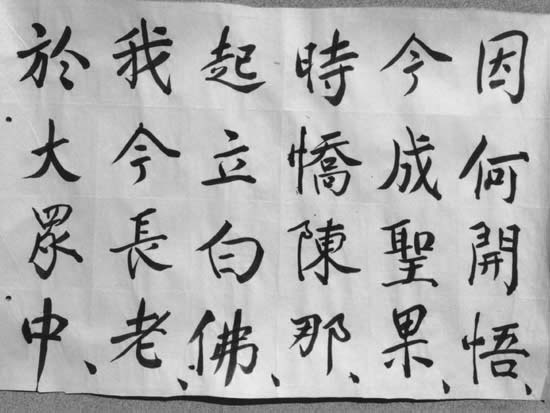 因何開悟、
今成聖果、
時憍陳那、
起立白佛、
我今長老、
於大眾中、